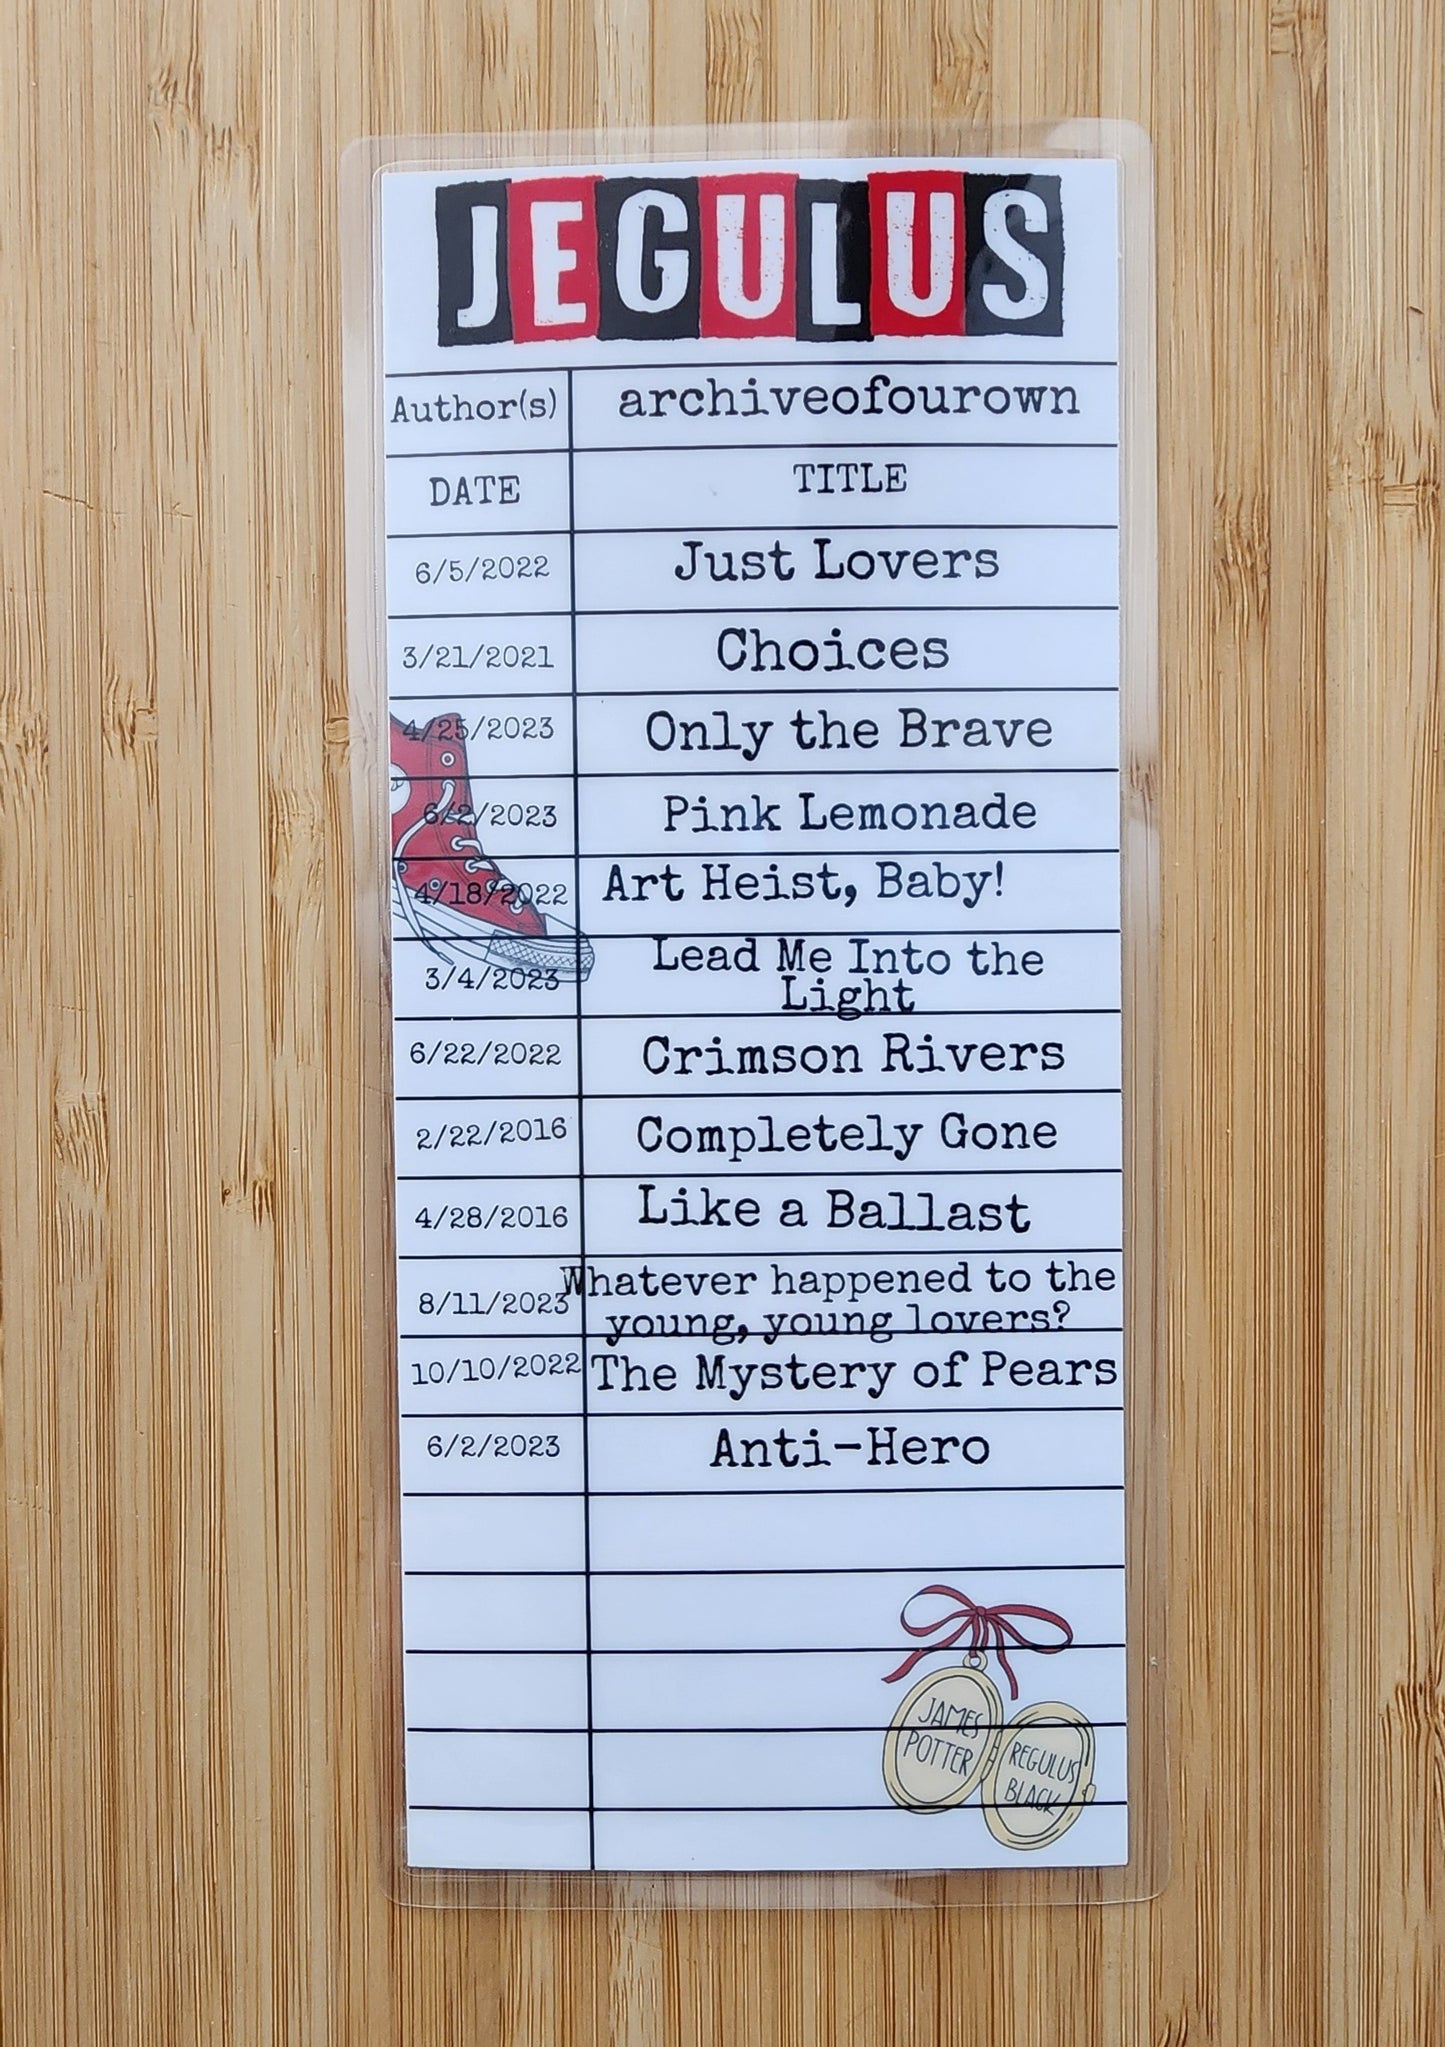 JEGULUS
Author(s) archiveofourown
DATE TITLE
6/5/2022 Just Lovers
3/21/2021 Choices
4/25/2023 Only the Brave
6/2/2023 Pink Lemonade
4/18/2022 Art Heist, Baby!
3/4/2023 Lead Me Into the
Light
6/22/2022 Crimson Rivers
2/22/2016 Completely Gone
4/28/2016 Like a Ballast
8/11/2023 Whatever happened to the
young, young lovers?
10/10/2022 The Mystery of Pears
6/2/2023 Anti-Hero
JAMES
POTTER
REGULUS
BLACK